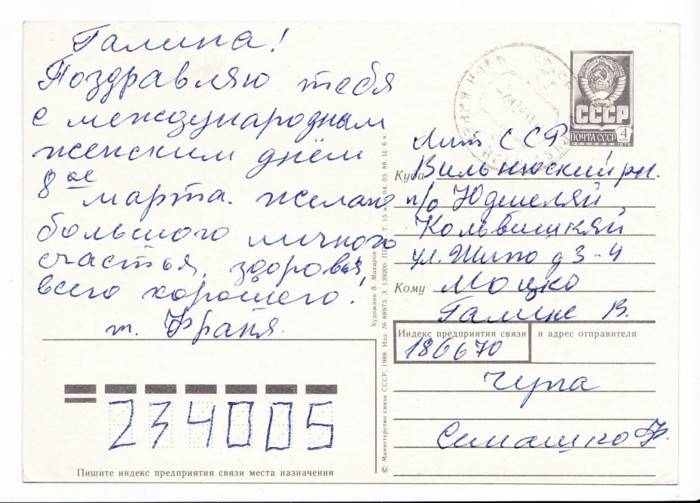 Галина!
Поздравляю тебя
с международным
женским днём
8ое марта. желаю
большого личного
счастья, здоровья,
всего хорошего!
т. Франя.
СССР
ПОЧТА СССР 4
Лит. ССР
Куда Вильнюсский рн.
п/о Юдшеляй
Кольвишкяй
ул. Жилю д 3-4
Кому Моцко
Галине В.
Индекс предприятия связи и адрес отправителя
186670
Чупа
Семашко Ф.
234005
Пишите индекс предприятия связи места назначения
Художник В. Макаров
© Министерство связи СССР, 1988. Изд. № 88973. З. 139200.